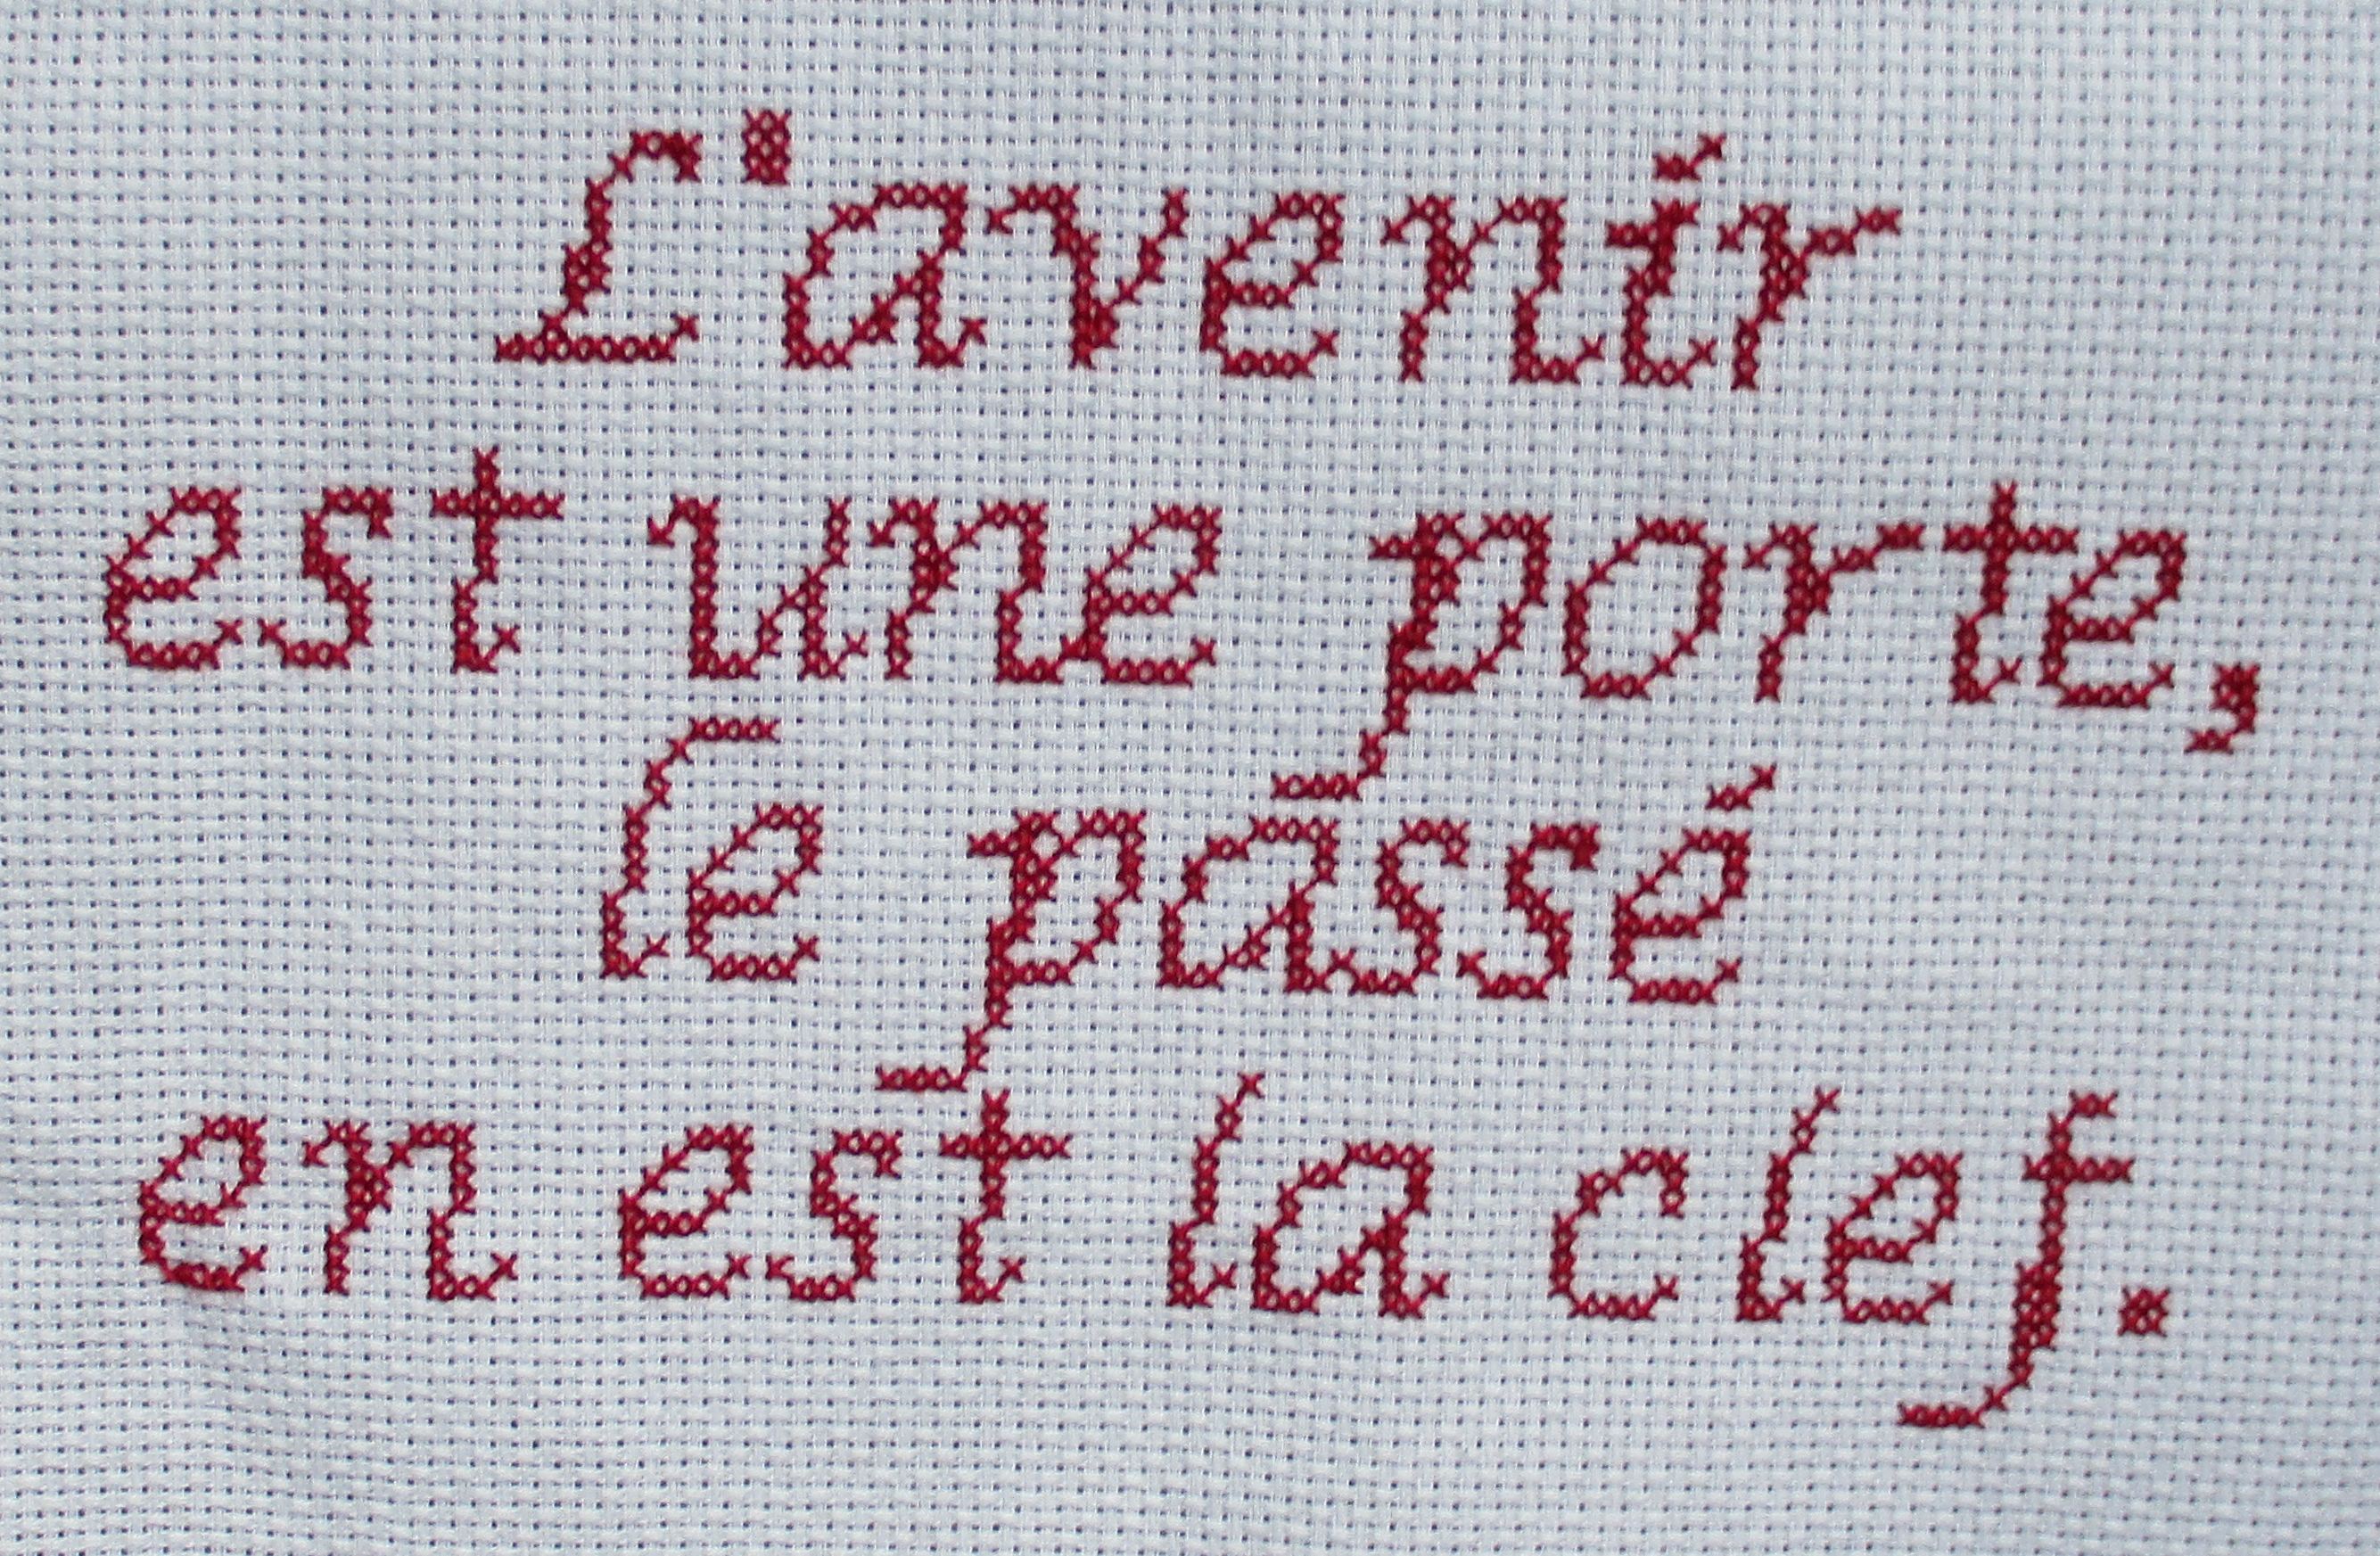 L'avenir
est une porte,
le passé
en est la clef.